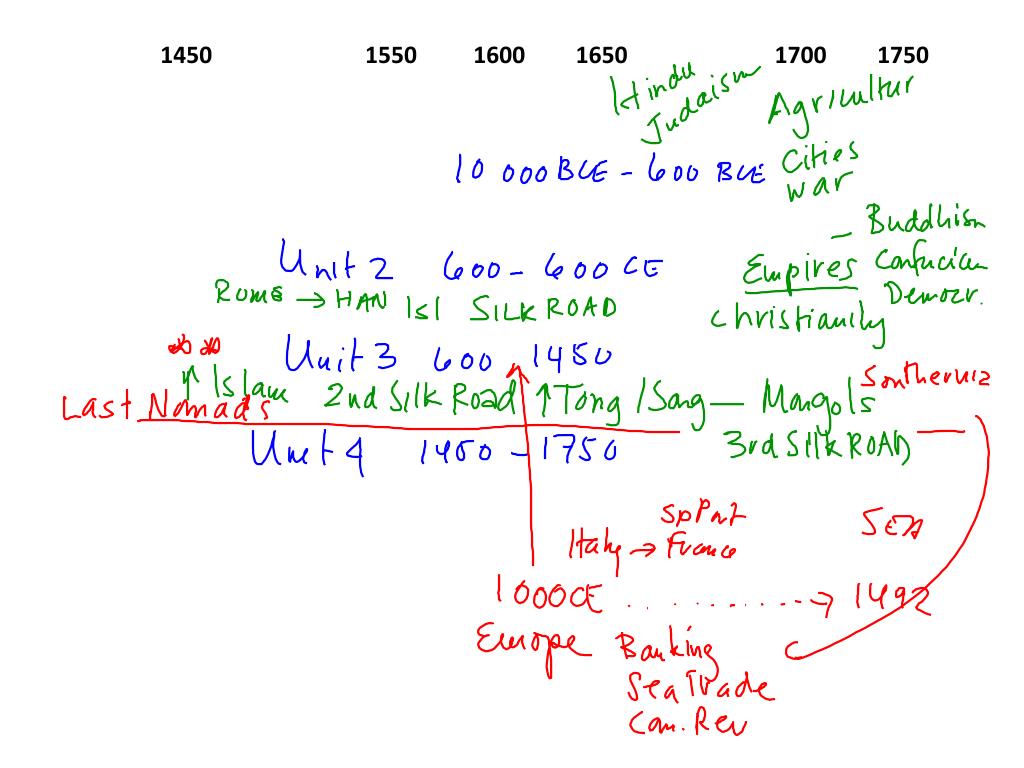 1450 1550 1600 1650 1700 1750
Hindu
Judaism
Agricultur
10 000 BCE - 600 BCE
Cities
war
Unit 2 600 - 600 CE
Empires
- Buddhism
Confucian
Democr.
Rome → HAN 1st SILK ROAD
Christianity
Unit 3 600 1450
↑ Islam 2nd Silk Road ↑ Tang / Song — Mongols
Last Nomads
Unit 4 1450 - 1750
3rd Silk ROAD
Sp Port
Italy → France
SEA
1000CE ........→ 1492
Europe Banking
Sea Trade
Com. Rev